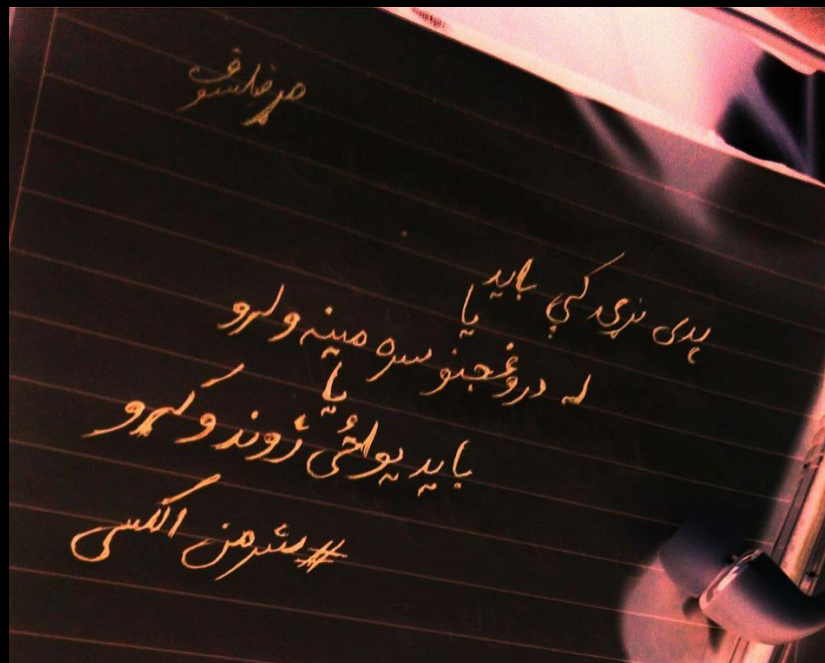 هر فلسوف
پدی نړۍ کې باید
یا
له دروغجنو سره مینه ولرو
یا
باید یواځی ژوند وکړو
#شرمن الکسی